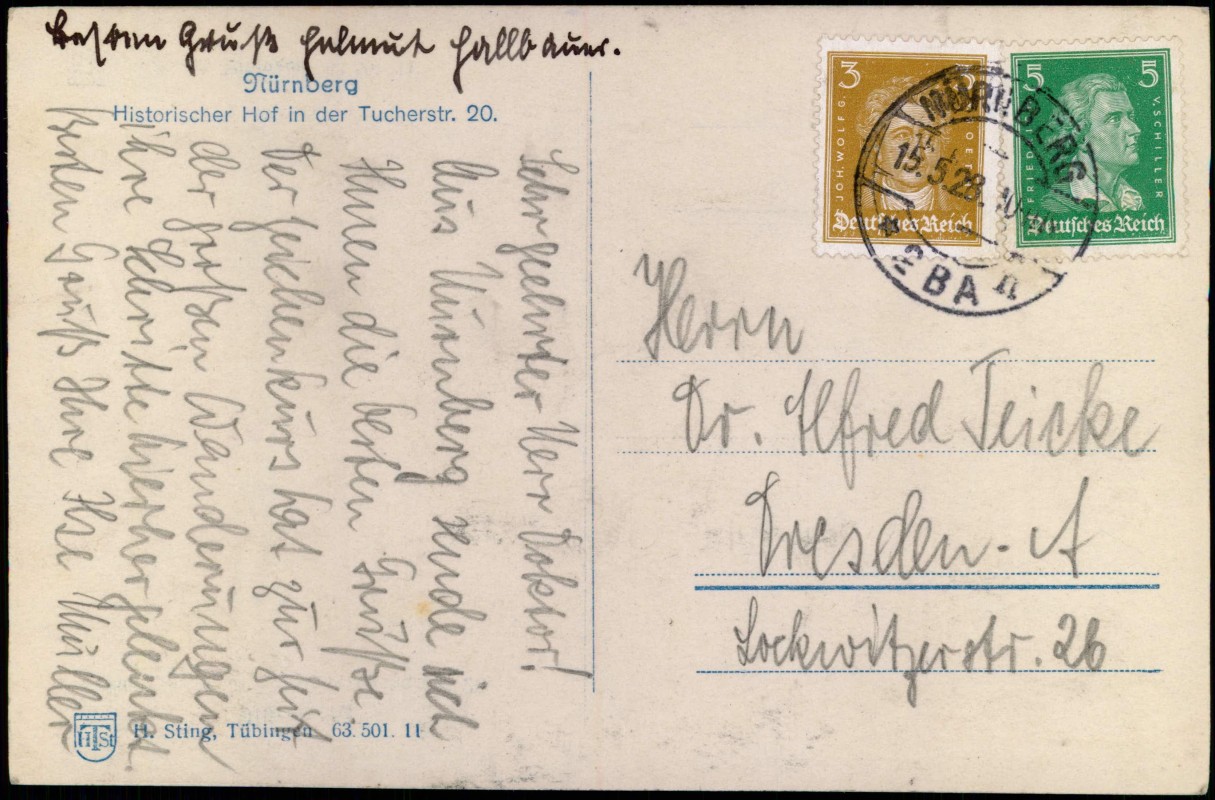 Besten Gruß Helmut Hallbauer.
Nürnberg
Historischer Hof in der Tucherstr. 20.
Sehr geehrter Herr Doktor!
Aus Nürnberg sende ich
Ihnen die besten Grüße.
Der Zeichenkurs hat zur Zeit
der großen Wanderungen
ihre Schritte hierher gelenkt.
Besten Gruß Ihre Ilse Müller
H. Sting, Tübingen 63. 501. 11
HTSt
3 3
JOH. WOLFG. V. GOETHE
Deutsches Reich
5 5
FRIEDRICH V. SCHILLER
Deutsches Reich
NÜRNBERG
15.5.28. 10
* 2 BA n
Herrn
Dr. Alfred Teicke
Dresden-A
Lockwitzerstr. 26